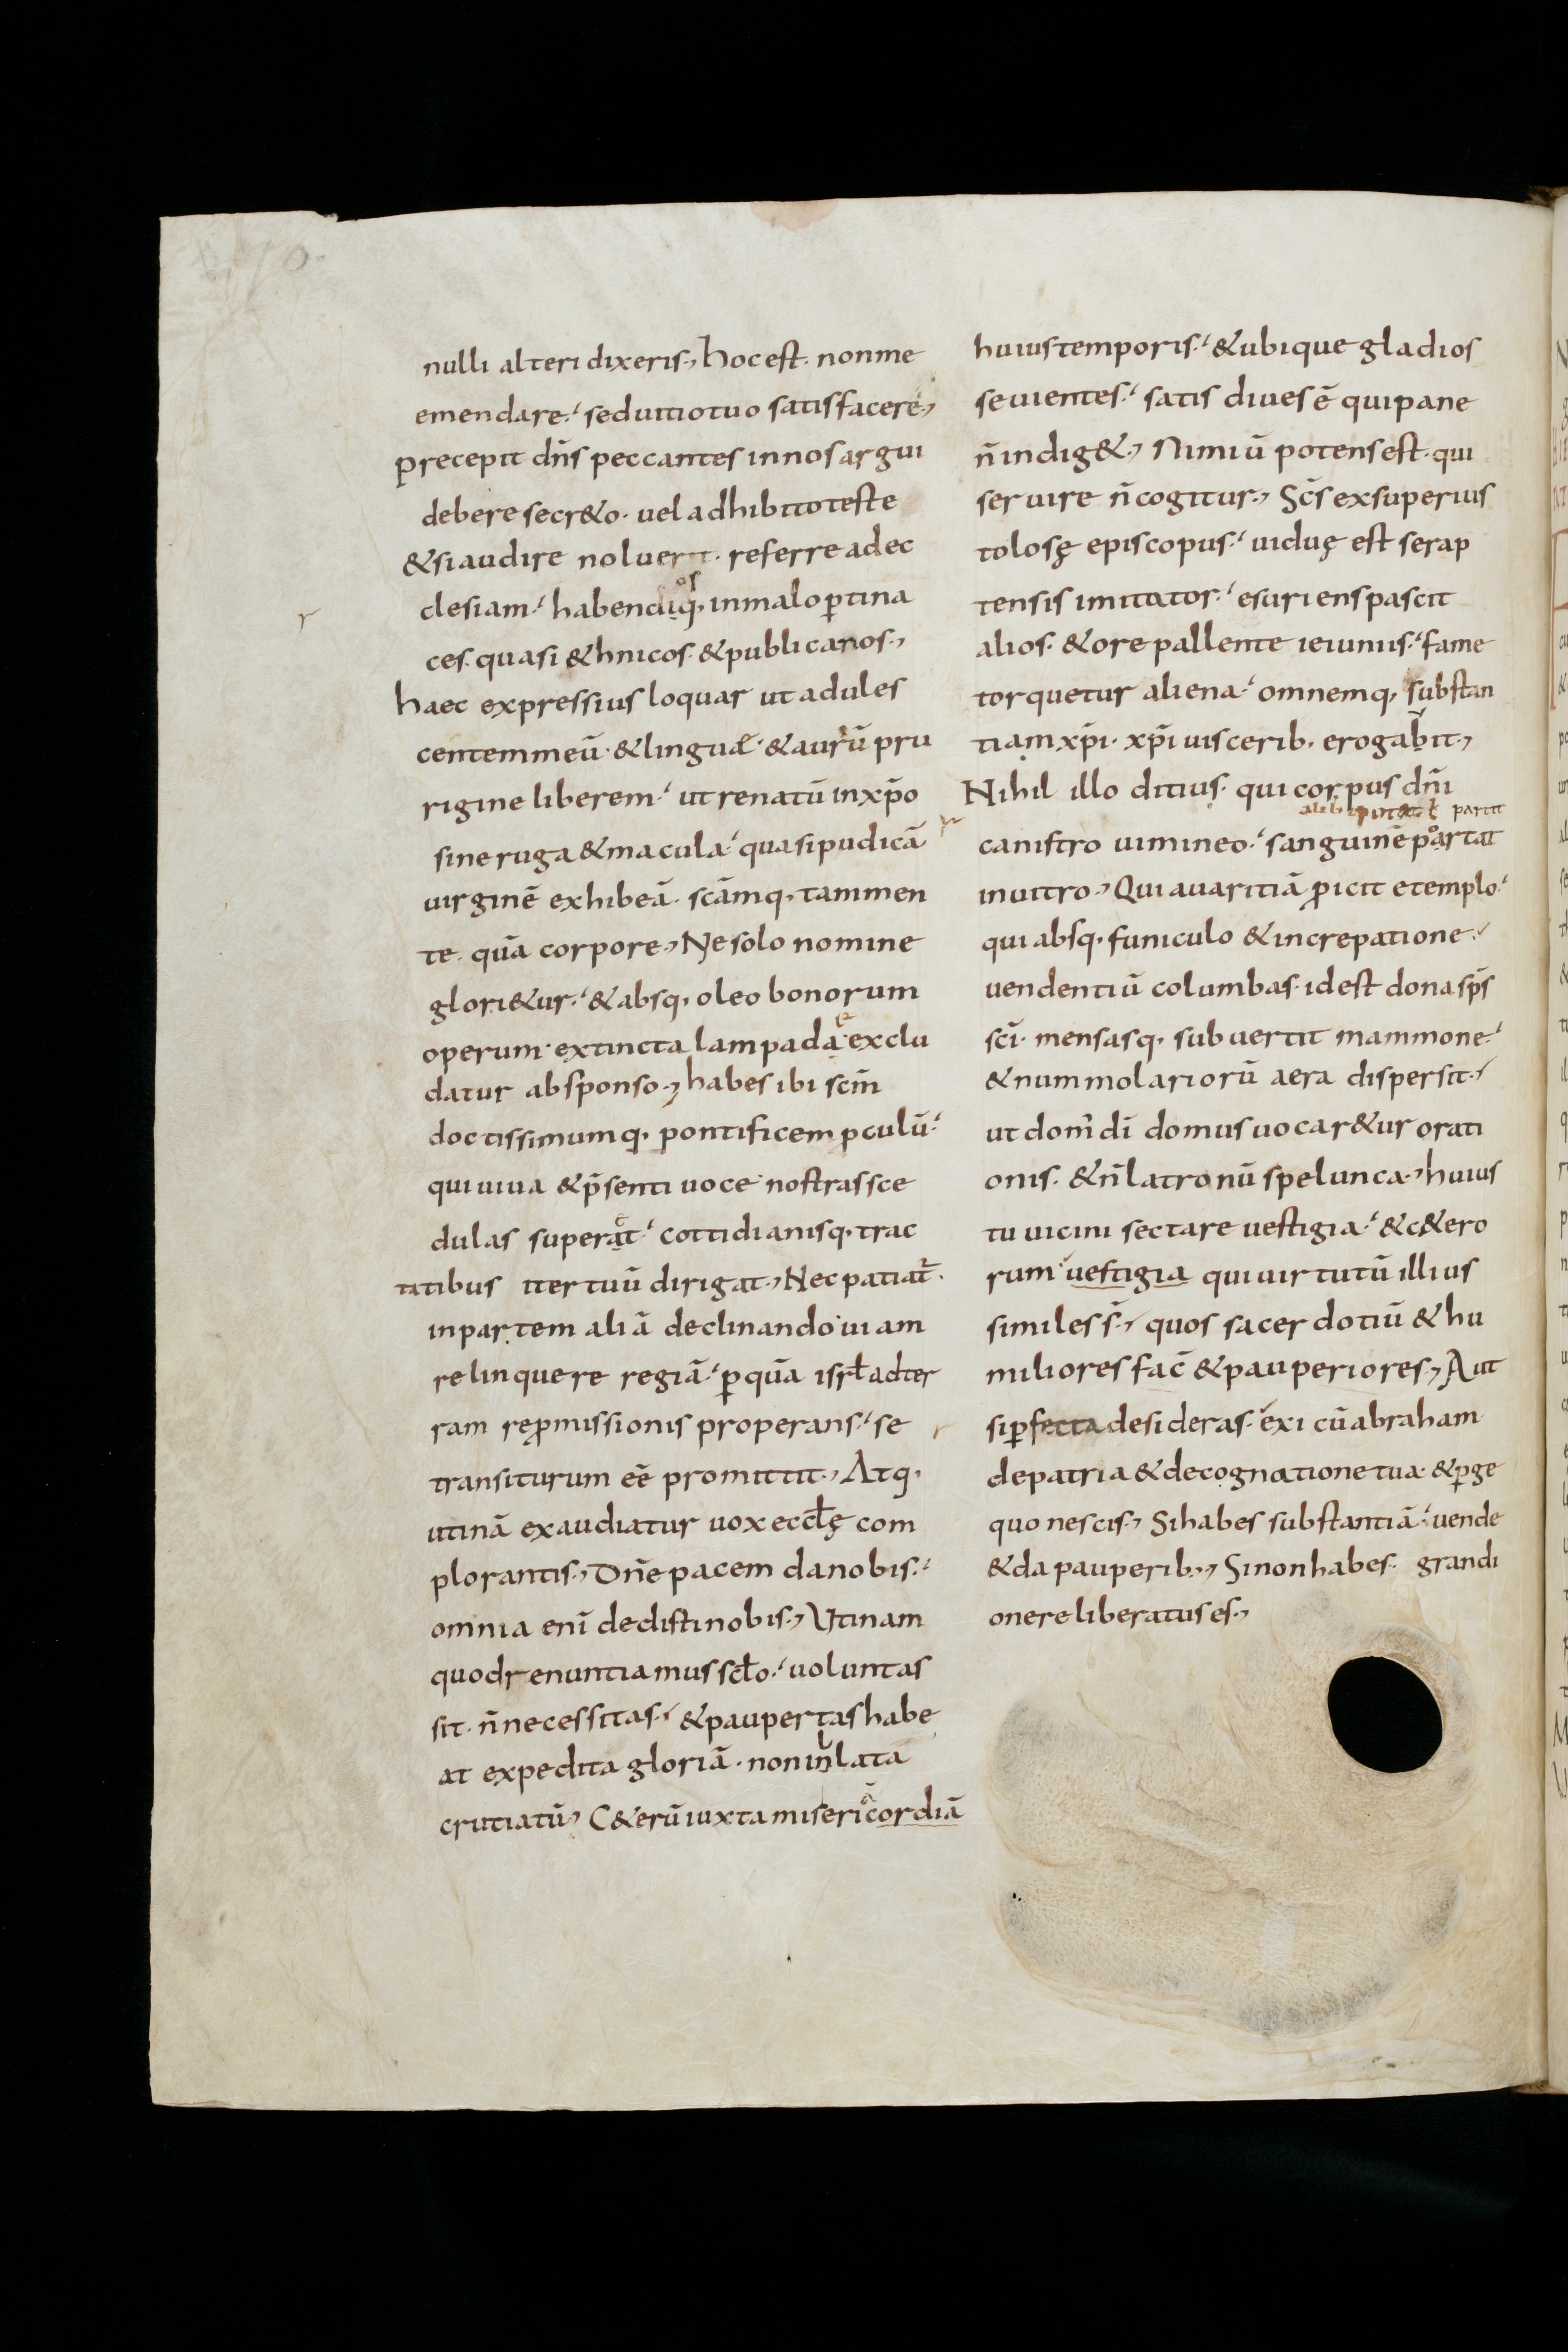 nulli alteri dixeris., hoc est. non me
emendare.' sed uitio tuo satisfacere.,
precepit dn̄s peccantes in nos argui
debere secr&o. uel adhibito teste
& si audire noluerit. referre ad ec
clesiam.' habendiq, in malo ꝑtina
ces. quasi &hnicos. & publicanos.,
haec expressius loquar ut adules
centem meū. & linguæ. & auriū pru
rigine liberem.' ut renatū in xp̄o
sine ruga & macula.' quasi pudicā
uirginē exhibeā. scāmq, tam men
te. quā corpore., Ne solo nomine
glori&ur.' & absq, oleo bonorum
operum. extincta lampade exclu
datur ab sponso., habes ibi scm̄
doctissimumq, pontificem ꝓculū.'
qui uiua & p̄senti uoce nostras sce
dulas superet.' cottidianisq, trac
tatibus iter tuū dirigat., Nec patiat᷑.
in partem aliā declinando uiam
relinquere regiā.' ꝑ quā isrł ad ter
ram reꝓmissionis properans.' se
transiturum eē promittit., Atq,
utinā exaudiatur uox eccłę com
plorantis., Dn̄e pacem da nobis.'
omnia enī dedisti nobis., Utinam
quod renuntiamus scło.' uoluntas
sit. n̄ necessitas.' & paupertas habe
at expedita gloriā. non inlata
crutiatū., C&erū iuxta misericordiā
huius temporis.' & ubique gladios
seuientes.' satis diues ē qui pane
n̄ indig&., Nimiū potens est. qui
seruire n̄ cogitur., Sc̄s exsuperius
tolosę episcopus.' uiduę est serap
tensis imitator.' esuriens pascit
alios. & ore pallente ieiuniis.' fame
torquetur aliena.' omnemq, substan
tiam xp̄i. xp̄i uiscerib. erogauit.,
Nihil illo ditius. qui corpus dn̄i
partit
canistro uimineo.' sanguinē portat
in uitro., Qui auaritiā ꝓicit e templo.'
qui absq, funiculo & increpatione.'
uendentiū columbas. id est dona sp̄s
sc̄i. mensasq, subuertit mammone.'
& nummolariorū aera dispersit.'
ut dom' dī domus uocar&ur orati
onis. & n̄ latronū spelunca., huius
tu uicini sectare uestigia.' & c&ero
rum uestigia qui uirtutū illius
similes s̄.' quos sacerdotiū & hu
miliores fac̄ & pauperiores., Aut
si ꝑfecta desideras. exi cū abraham
de patria & de cognatione tua. & ꝑge
quo nescis., Si habes substantiā.' uende
& da pauperib., Si non habes. grandi
onere liberatus es.,